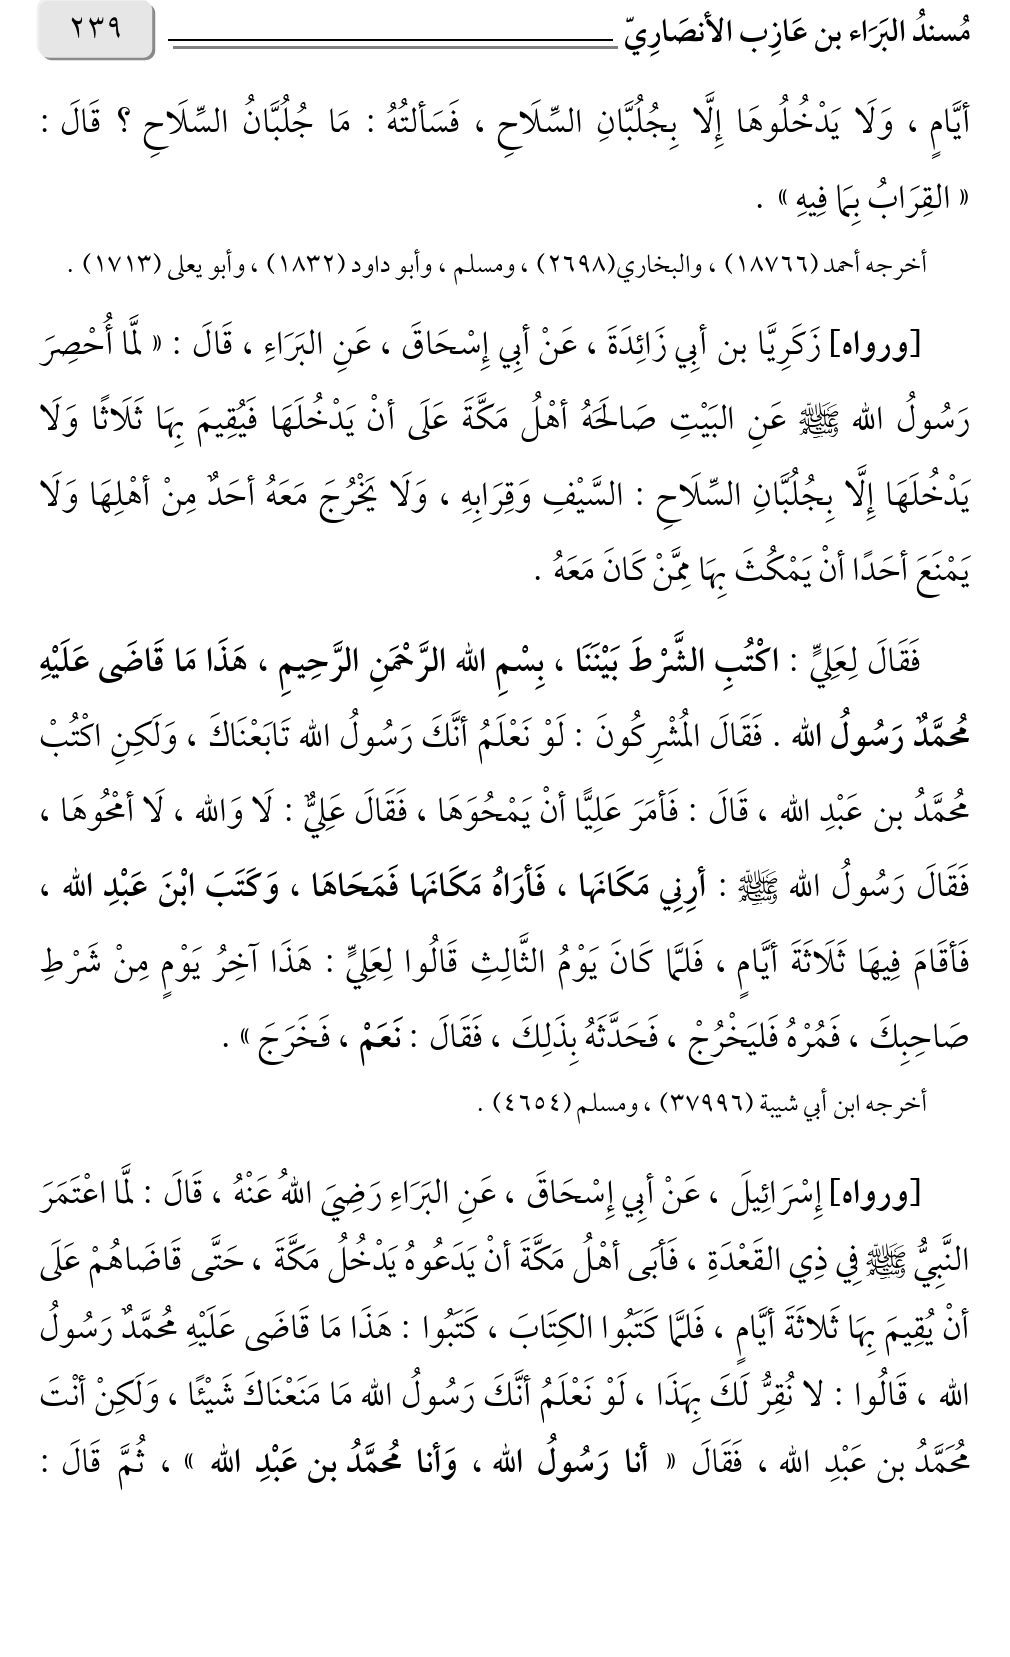 مُسندُ البَرَاء بن عَازِب الأنصَارِيّ ٢٣٩
أيَّامٍ ، وَلَا يَدْخُلُوهَا إِلَّا بِجُلُبَّانِ السِّلَاحِ ، فَسَألتُهُ : مَا جُلُبَّانُ السِّلَاحِ ؟ قَالَ :
« القِرَابُ بِمَا فِيهِ » .
أخرجه أحمد (١٨٧٦٦) ، والبخاري(٢٦٩٨) ، ومسلم ، وأبو داود (١٨٣٢) ، وأبو يعلى (١٧١٣) .
[ورواه] زَكَرِيَّا بن أبي زَائِدَةَ ، عَنْ أبي إِسْحَاقَ ، عَنِ البَرَاءِ ، قَالَ : « لَمَّا أُحْصِرَ
رَسُولُ الله ﷺ عَنِ البَيْتِ صَالَحَهُ أهْلُ مَكَّةَ عَلَى أنْ يَدْخُلَهَا فَيُقِيمَ بِهَا ثَلَاثًا وَلَا
يَدْخُلَهَا إِلَّا بِجُلُبَّانِ السِّلَاحِ : السَّيْفِ وَقِرَابِهِ ، وَلَا يَخْرُجَ مَعَهُ أحَدٌ مِنْ أهْلِهَا وَلَا
يَمْنَعَ أحَدًا أنْ يَمْكُثَ بِهَا مِمَّنْ كَانَ مَعَهُ .
فَقَالَ لِعَلِيٍّ : اكْتُبِ الشَّرْطَ بَيْنَنَا ، بِسْمِ الله الرَّحْمَنِ الرَّحِيمِ ، هَذَا مَا قَاضَى عَلَيْهِ
مُحمَّدٌ رَسُولُ الله . فَقَالَ المُشْرِكُونَ : لَوْ نَعْلَمُ أنَّكَ رَسُولُ الله تَابَعْنَاكَ ، وَلَكِنِ اكْتُبْ
مُحمَّدُ بن عَبْدِ الله ، قَالَ : فَأمَرَ عَلِيًّا أنْ يَمْحُوَهَا ، فَقَالَ عَلِيٌّ : لَا وَالله ، لَا أمْحُوهَا ،
فَقَالَ رَسُولُ الله ﷺ : أرِنِي مَكَانَها ، فَأرَاهُ مَكَانَها فَمَحَاهَا ، وَكَتَبَ ابْنَ عَبْدِ الله ،
فَأقَامَ فِيهَا ثَلَاثَةَ أيَّامٍ ، فَلمَّا كَانَ يَوْمُ الثَّالِثِ قَالُوا لِعَلِيٍّ : هَذَا آخِرُ يَوْمٍ مِنْ شَرْطِ
صَاحِبِكَ ، فَمُرْهُ فَليَخْرُجْ ، فَحَدَّثَهُ بِذَلِكَ ، فَقَالَ : نَعَمْ ، فَخَرَجَ » .
أخرجه ابن أبي شيبة (٣٧٩٩٦) ، ومسلم (٤٦٥٤) .
[ورواه] إِسْرَائِيلَ ، عَنْ أبي إِسْحَاقَ ، عَنِ البَرَاءِ رَضِيَ اللهُ عَنْهُ ، قَالَ : لَمَّا اعْتَمَرَ
النَّبِيُّ ﷺ فِي ذِي القَعْدَةِ ، فَأبَى أهْلُ مَكَّةَ أنْ يَدَعُوهُ يَدْخُلُ مَكَّةَ ، حَتَّى قَاضَاهُمْ عَلَى
أنْ يُقِيمَ بِهَا ثَلاثَةَ أيَّامٍ ، فَلمَّا كَتَبُوا الكِتَابَ ، كَتَبُوا : هَذَا مَا قَاضَى عَلَيْهِ مُحمَّدٌ رَسُولُ
الله ، قَالُوا : لا نُقِرُّ لَكَ بِهَذَا ، لَوْ نَعْلَمُ أنَّكَ رَسُولُ الله مَا مَنَعْنَاكَ شَيْئًا ، وَلَكِنْ أنْتَ
مُحَمَّدُ بن عَبْدِ الله ، فَقَالَ « أنا رَسُولُ الله ، وَأنا مُحمَّدُ بن عَبْدِ الله » ، ثُمَّ قَالَ :